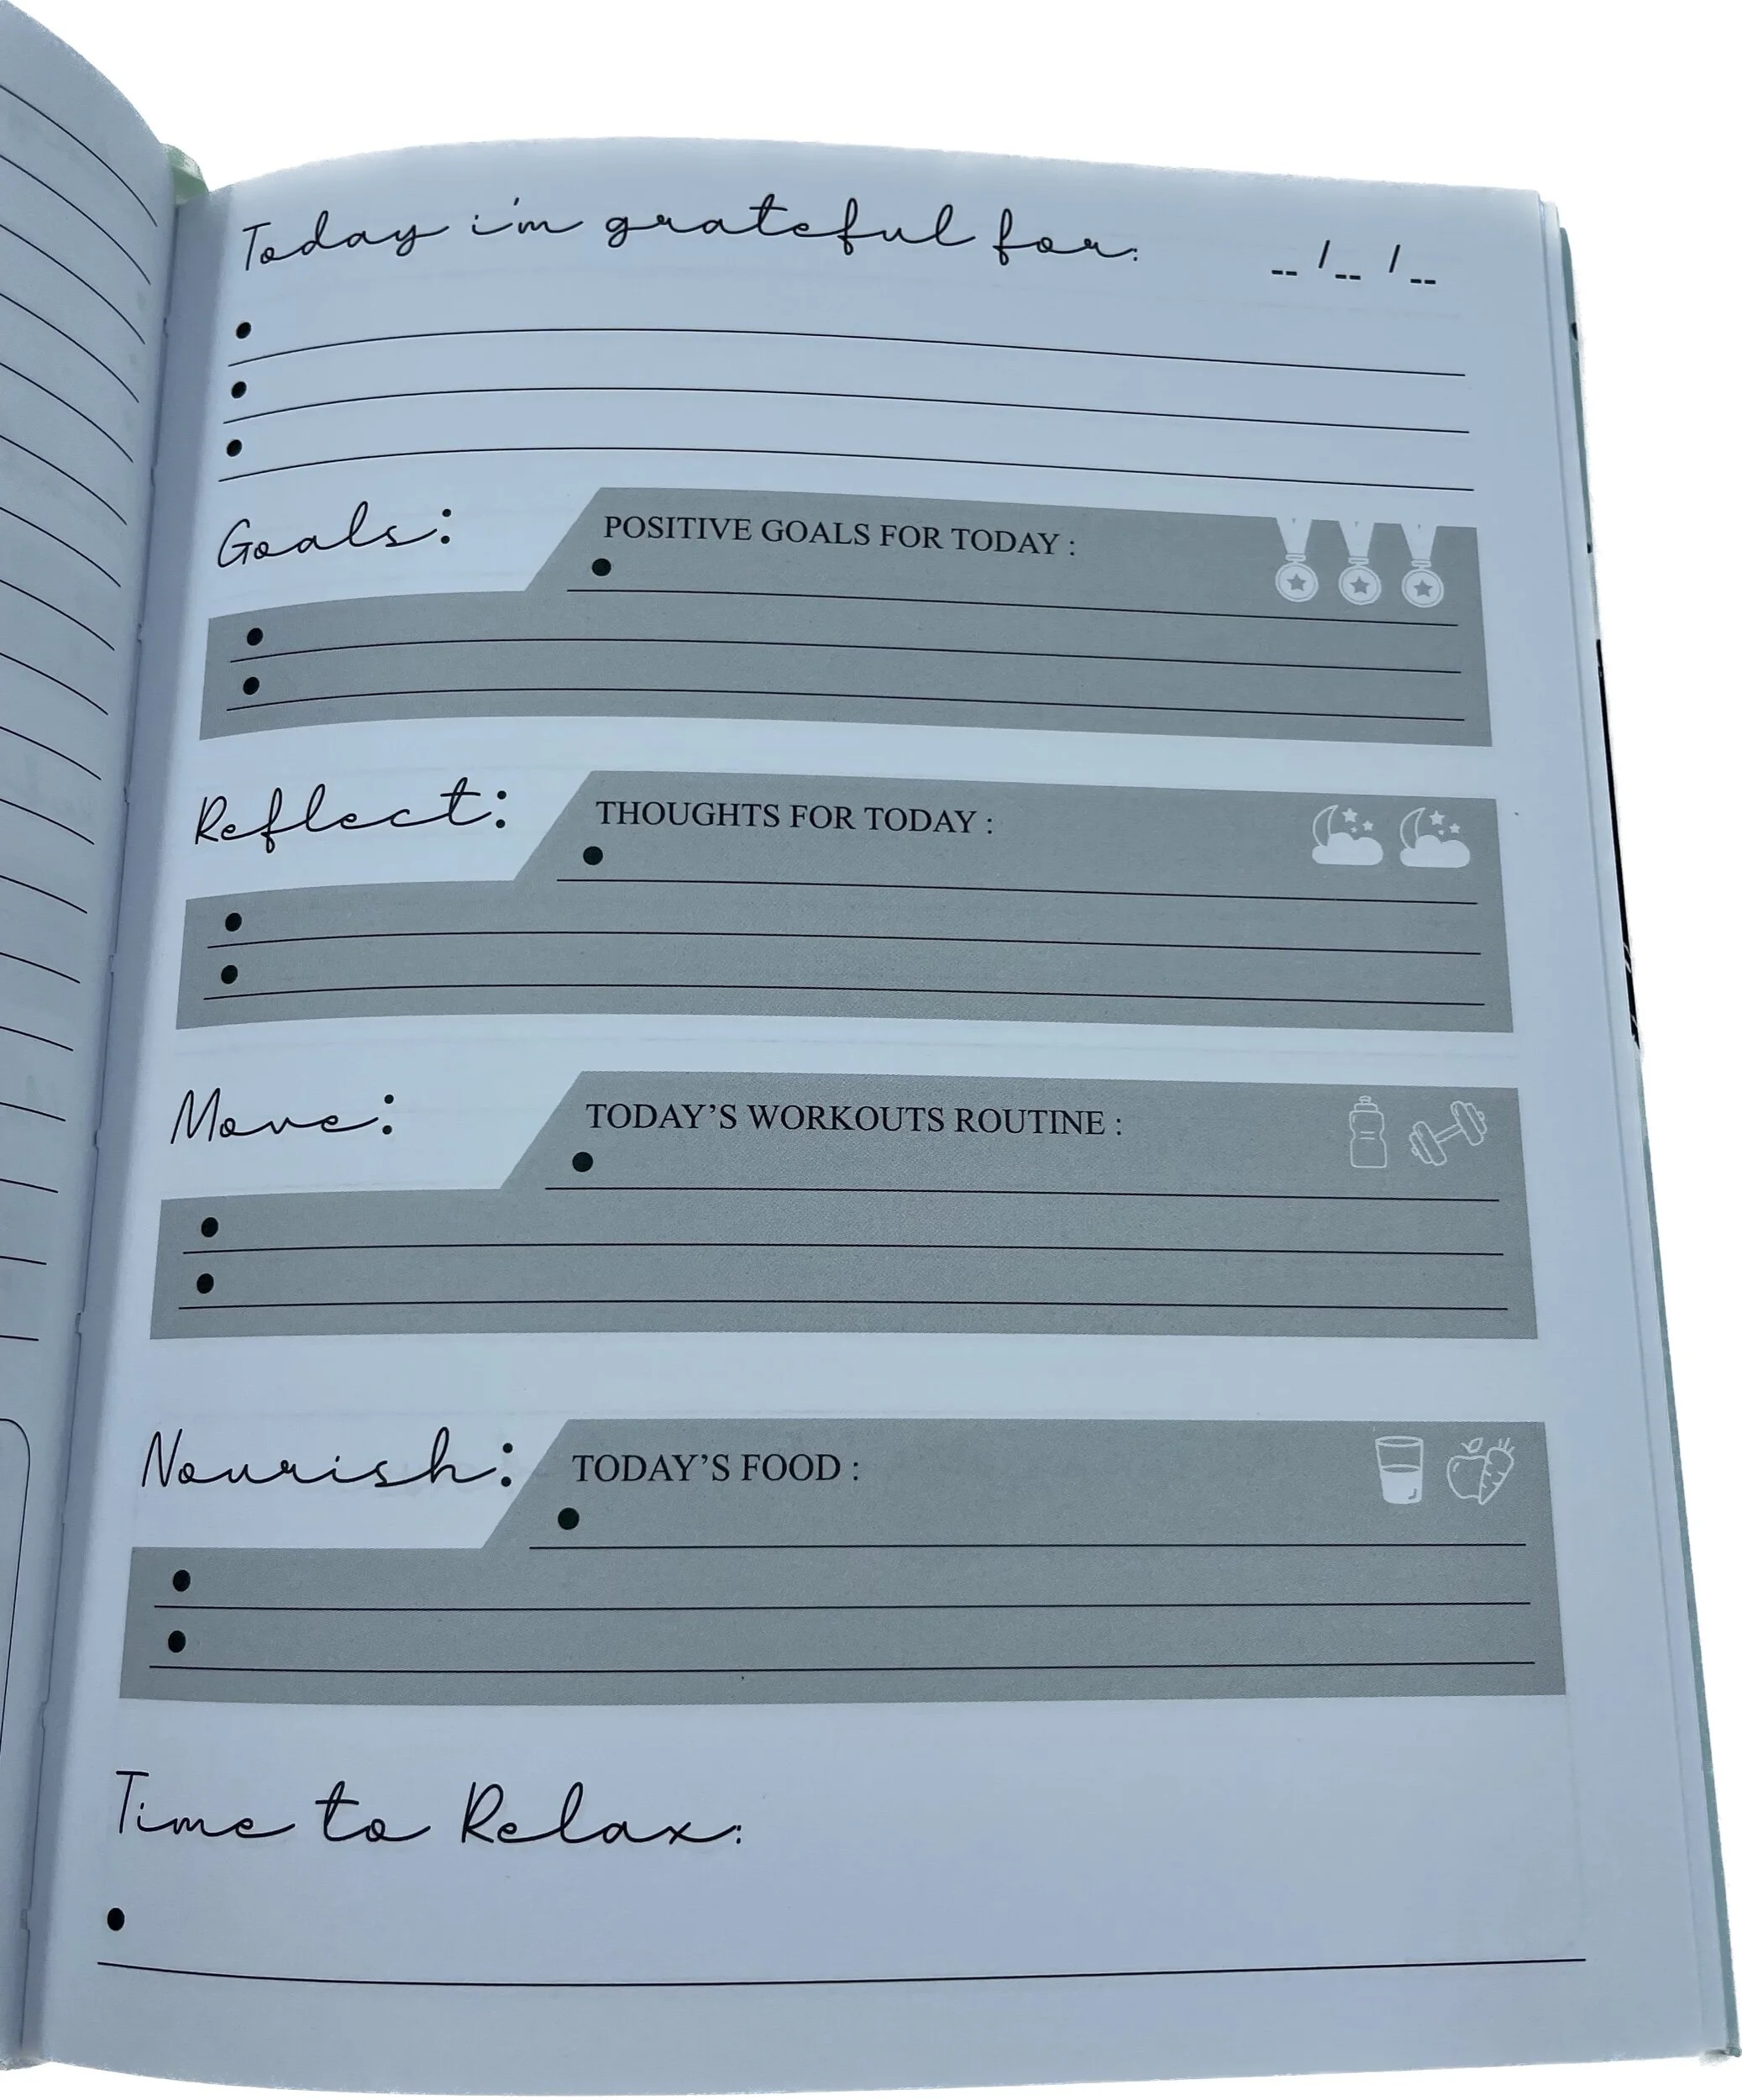 Today i'm grateful for: __/__/__
Goals: POSITIVE GOALS FOR TODAY :
Reflect: THOUGHTS FOR TODAY :
Move: TODAY’S WORKOUTS ROUTINE :
Nourish: TODAY’S FOOD :
Time to Relax: